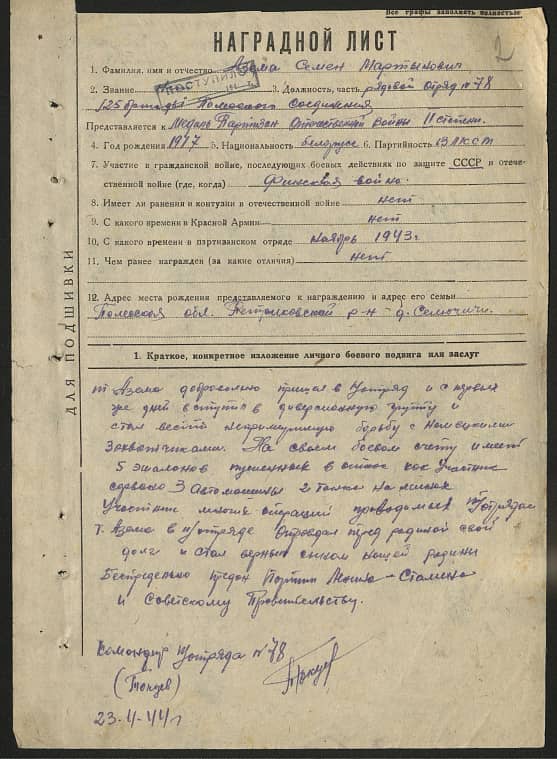 Все графы заполнять полностью
2
НАГРАДНОЙ ЛИСТ
1. Фамилия, имя и отчество Азема Семен Мартынович
ПОСТУПИЛО
2. Звание 3. Должность, часть рядовой отряд №78
125 бригады Полесского Соединения
Представляется к Медаль Партизан Отечественной Войны II степени.
4. Год рождения 1917 5. Национальность белорусс 6. Партийность ВЛКСМ
7. Участие в гражданской войне, последующих боевых действиях по защите СССР и отече-
ственной войне (где, когда) Финская война.
8. Имеет ли ранения и контузии в отечественной войне нет
9. С какого времени в Красной Армии нет
10. С какого времени в партизанском отряде ноябрь 1943г.
11. Чем ранее награжден (за какие отличия) нет
12. Адрес места рождения представляемого к награждению и адрес его семьи
Полесская обл. Петриковский р-н д.
ДЛЯ ПОДШИВКИ
1. Краткое, конкретное изложение личного боевого подвига или заслуг
т Азема добровольно пришел в п/отряд и с первых
же дней вступил в диверсионную группу и
стал вести непримиримую борьбу с Немецкими
Захватчиками. На своем боевом счету имеет
5 эшалонов пущенных в откос как Участник
3 Автомашины 2 танка на минах
Участник многих операций проводимых п/отрядом
т. Азема в п/отряде Оправдал перед родиной свой
долг и стал верным сыном нашей родины
Беспредельно предан Партии Ленина-Сталина
и Советскому Правительству.
Командир п/отряда №78
23-4-44г